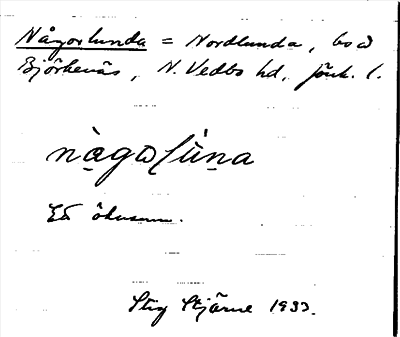 Någorlunda = Nordlunda, bod
Björkenäs, N. Vedbo hd, Jönk. l.
nàgɷlùna
Ett öknamn.
Stig Stjärne 1933.